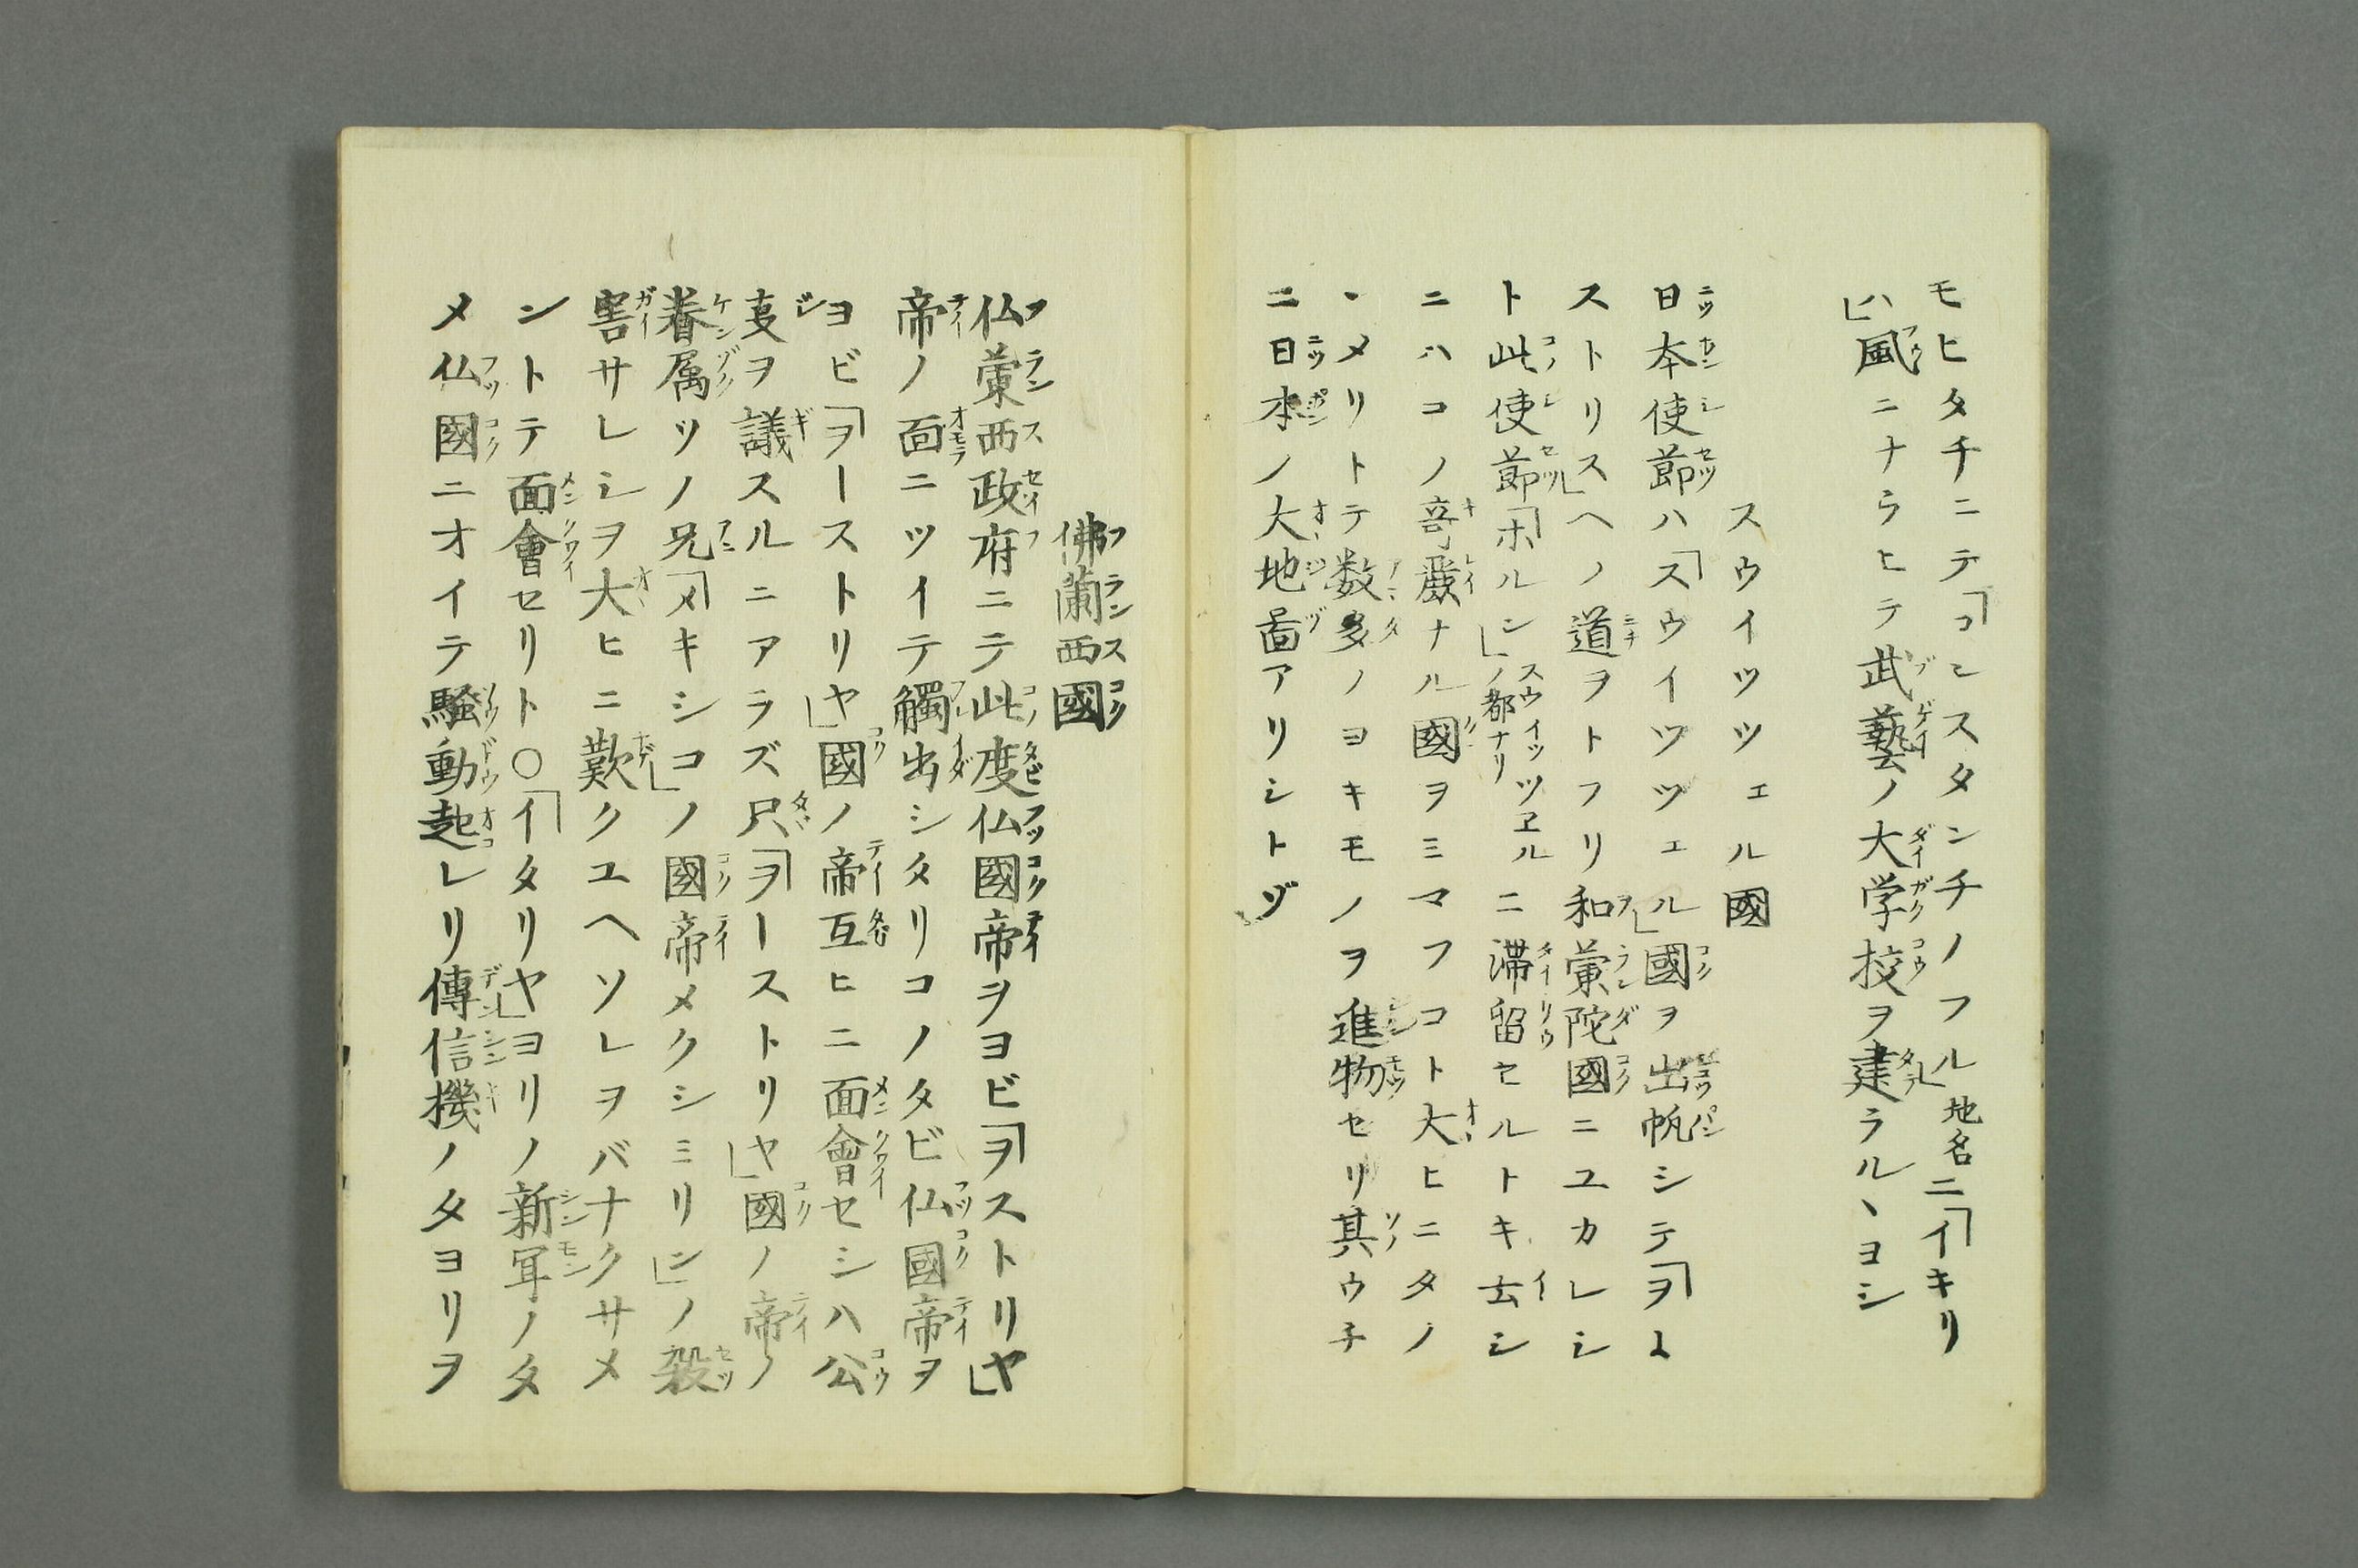 モヒタチニテ「コンスタンチノフル」地名ニ「イキリ
ハ」風ニナラヒテ武藝ノ大学校ヲ建ラルヽヨシ
スウイツツェル國
日本使節ハ「スウイツツェル」國ヲ出帆シテ「ヲヽ
ストリス」ヘノ道ヲトフリ和蘭陀國ニユカレシ
ト此使節「ホルン」ノ都ナリスウイッツヱルニ滞留セルトキ去シ
ニハコノ竒麗ナル國ヲミマフコト大ヒニタノ
ヽメリトテ数多ノヨキモノヲ進物セリ其ウチ
ニ日本ノ大地啚アリシトゾ
佛蘭西國
仏蘭西政府ニテ此度仏國帝ヲヨビ「ヲストリヤ」
帝ノ面ニツイテ觸出シタリコノタビ仏國帝ヲ
ヨビ「ヲーストリヤ」國ノ帝互ヒニ面會セシハ公
叓ヲ議スルニアラズ只「ヲーストリヤ」國ノ帝ノ
眷属ツノ兄「メキシコ」ノ國帝メクシミリン」ノ殺
害サレシヲ大ヒニ歎クユヘソレヲバナクサメ
ントテ面會セリト〇「イタリヤ」ヨリノ新聞ノタ
メ仏國ニオイテ騒動起レリ傳信機ノタヨリヲ